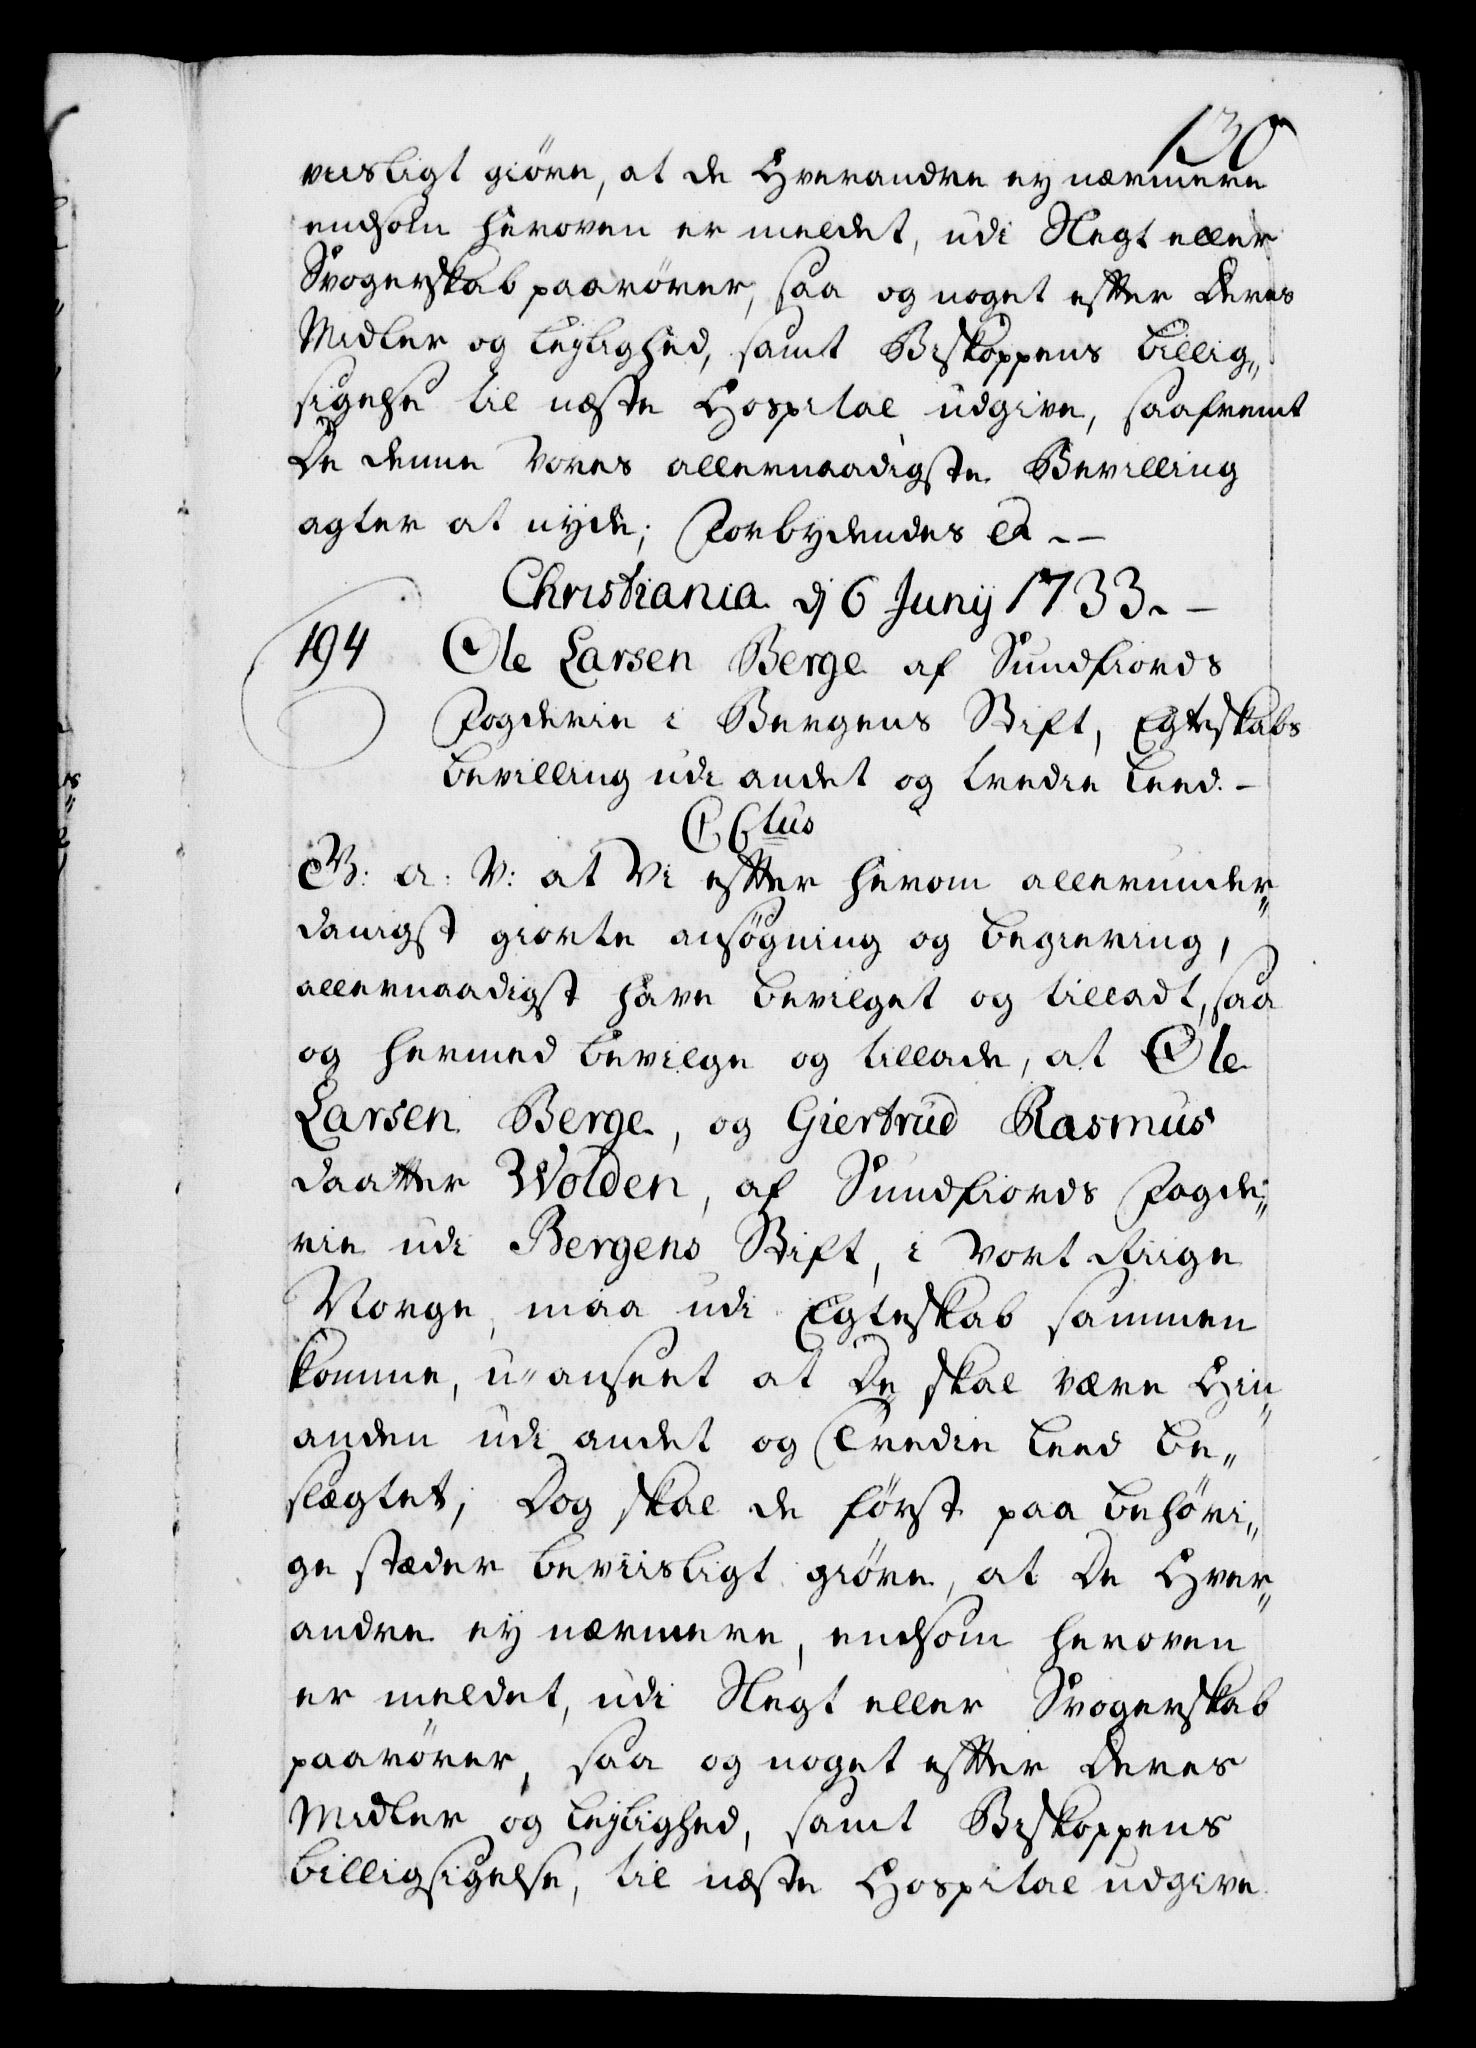 130
viisligt giöre, at de Hverandre ey nærmere
endsom heroven er meldet, udi Slegt eller
Svogerskab paarörer, saa og noget effter deres
Midler og leylighed, samt Biskoppens billig„
sigelse til næste Hospital udgive, saafremt
De denne Vores allernaadigste Bevilling
agter at nyde; Forbydendes &c. –
Christiania dj 6 Junij 1733. –
194 Ole Larsen Berge af Sundfiords
Fogderie i Bergens Stift, Egteskabs
bevilling udi andet og tredie leed. –
C6tus
G: A: V: at Vi effter herom allerunder„
danigst giorte ansøgning og begiering,
allernaadigst have bevilget og tilladt, saa
og hermed bevilge og tillade, at Ole
Larsen Berge, og Giertrud Rasmus
daatter Wolden, af Sundfiords Fogde„
rie udi Bergens Stift, i Vort Riige
Norge, maa udi Egteskab sammen
komme, u-anseet at De skal være Hin„
anden udi andet og Tredie leed be„
slægtet; Dog skal de först paa behöri„
ge stæder beviisligt giöre, at De Hver„
andre ey nærmere, endsom heroven
er meldet, udi Slegt eller Svogerskab
paarörer, saa og noget effter deres
Midler og leylighed, samt Biskoppens
billigsigelse, til næste Hospital udgive